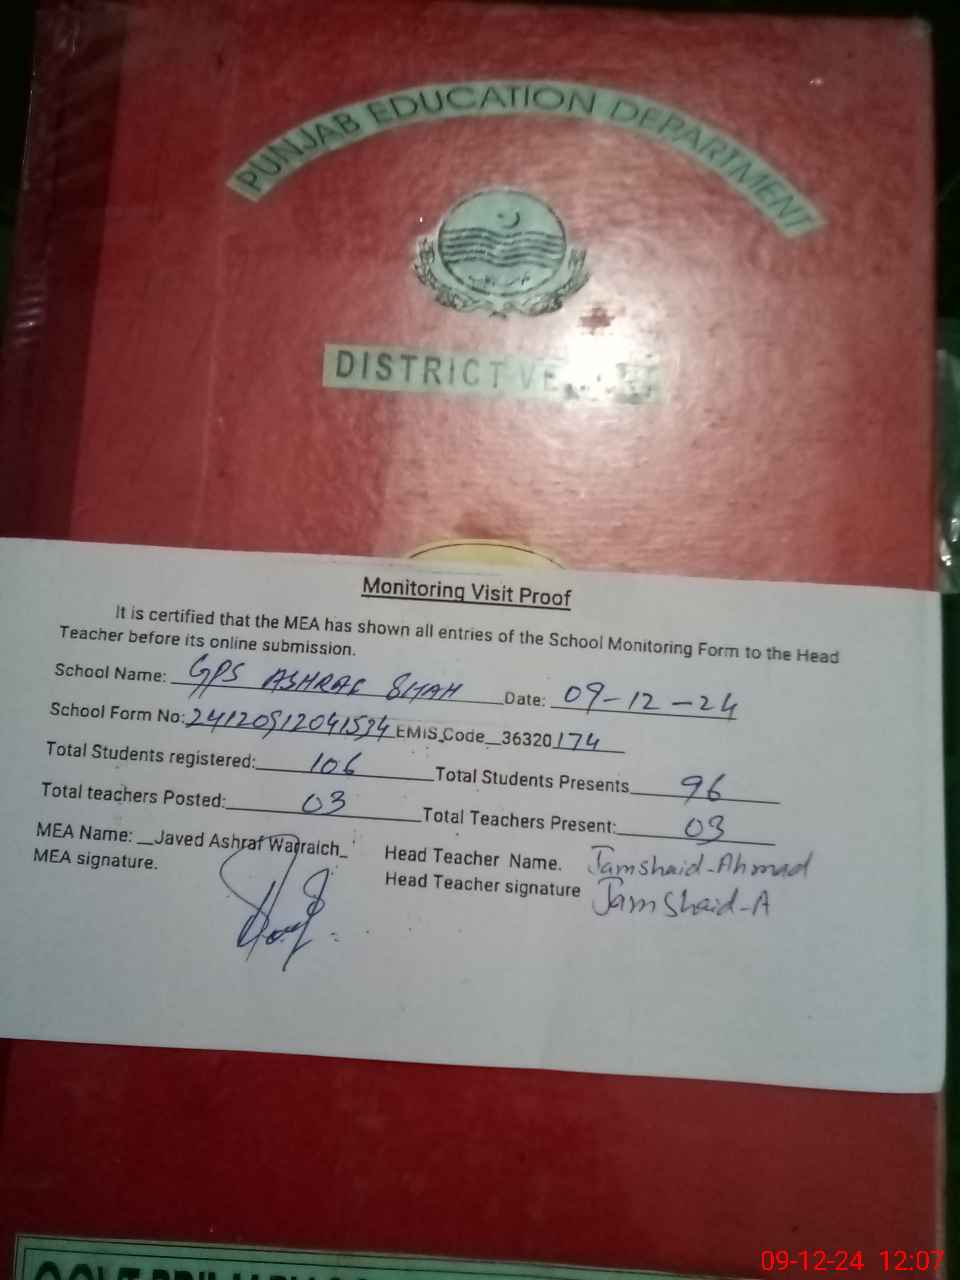 PUNJAB EDUCATION DEPARTMENT
DISTRICT
Monitoring Visit Proof
It is certified that the MEA has shown all entries of the School Monitoring Form to the Head
Teacher before its online submission.
School Name: GPS ASHRAF SHAH Date: 09-12-24
School Form No: EMIS_Code__36320174
Total Students registered: 106 Total Students Presents 96
Total teachers Posted: 03 Total Teachers Present: 03
MEA Name: __Javed Ashraf Warraich_ Head Teacher Name. Jamshaid-Ahmad
MEA signature. Head Teacher signature Jamshaid-A
09-12-24 12:07